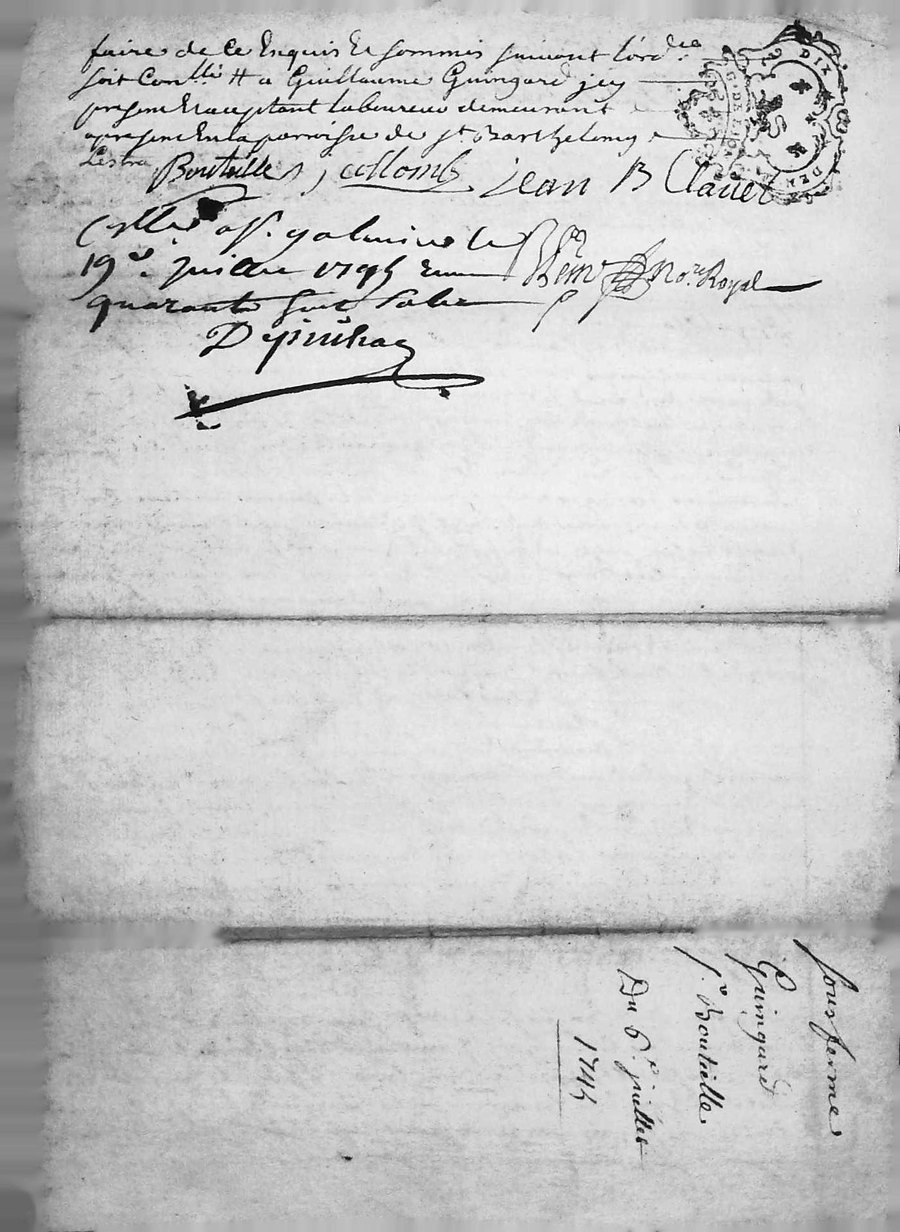 faire de ce Enquis Et sommés suivant l'ord.ce
soit Con.llé # a Guillaume Guingard jcy
present Et aceptant laboureur demeurant
apresent En la parroisse de st Barthelemy
Lestra
Bouteille J collomb Jean B Clavel
Collé a st. galmier le
19e. juillet 1745 Reçu
quarante huit sols
No.re Royal
Depuihac
DIX
DEN
sous ferme
Guingard
s.r Bouteille
Du 6e juillet
1745